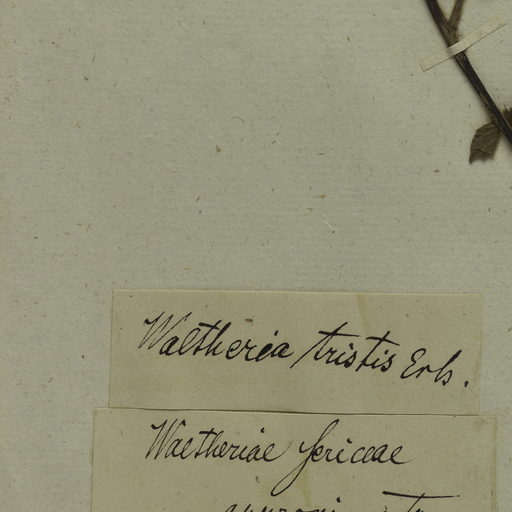 Waltheria tristis Erb.
Waltheriae sericeae